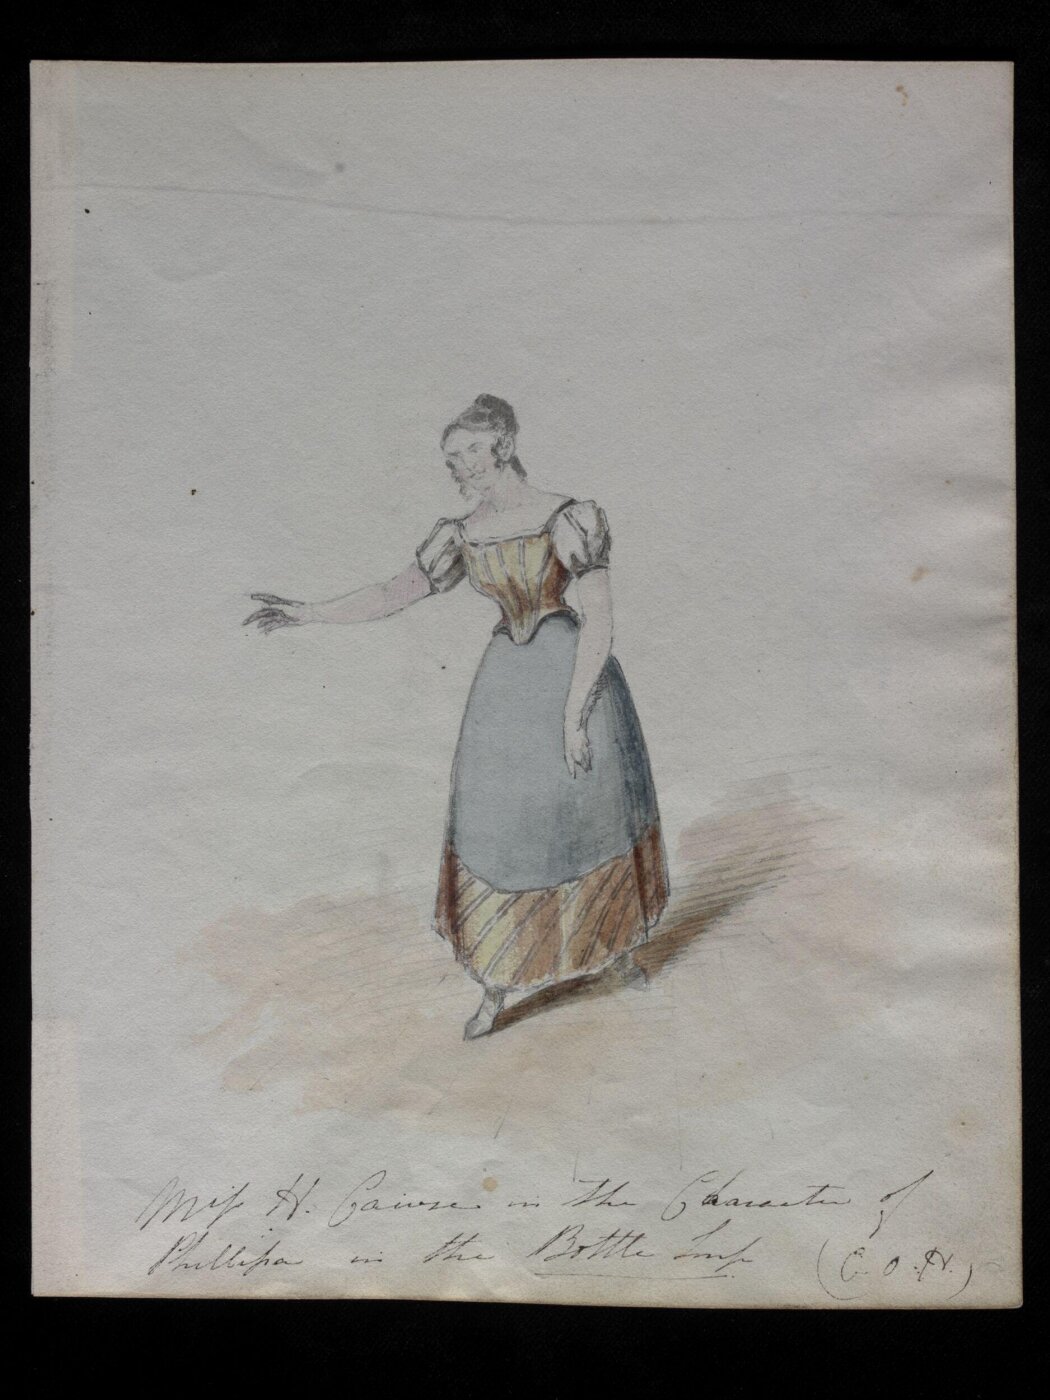 Miss H. Cawse in the Character of
Phillipa in the Bottle Imp (E. O. H.)